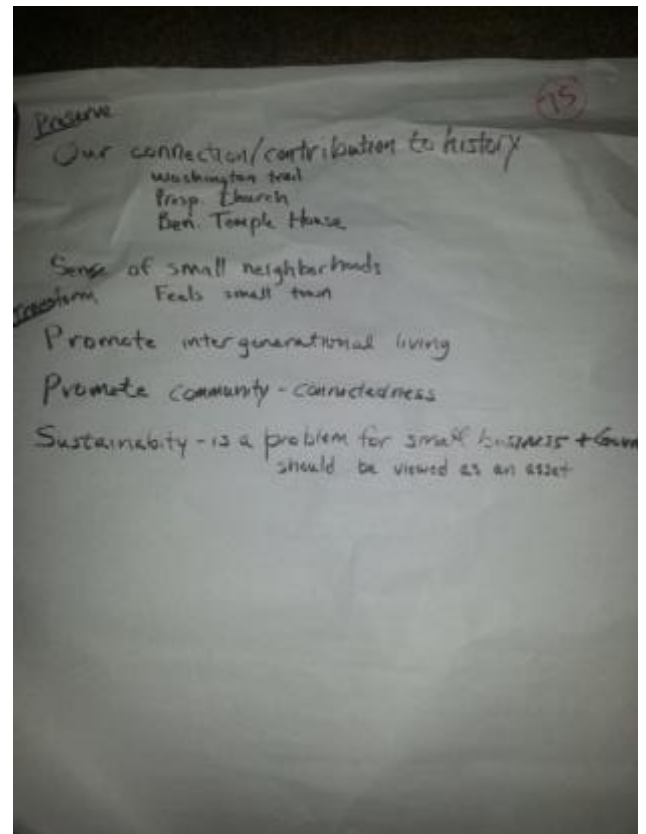 Preserve
15
Our connection/contribution to history
Washington trail
Prosp. Church
Ben. Temple House
Sense of small neighborhoods
Transform
Feels small town
Promote intergenerational living
Promote community - connectedness
Sustainabity - is a problem for small business +
should be viewed as an asset